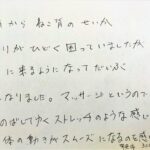 から ねこ背のせいか
りがひどく困っていましたが
に来るようになってだいぶ
なりました。マッサージというので
のばしてゆくストレッチのような感じ
体の動きがスムーズになるのを感